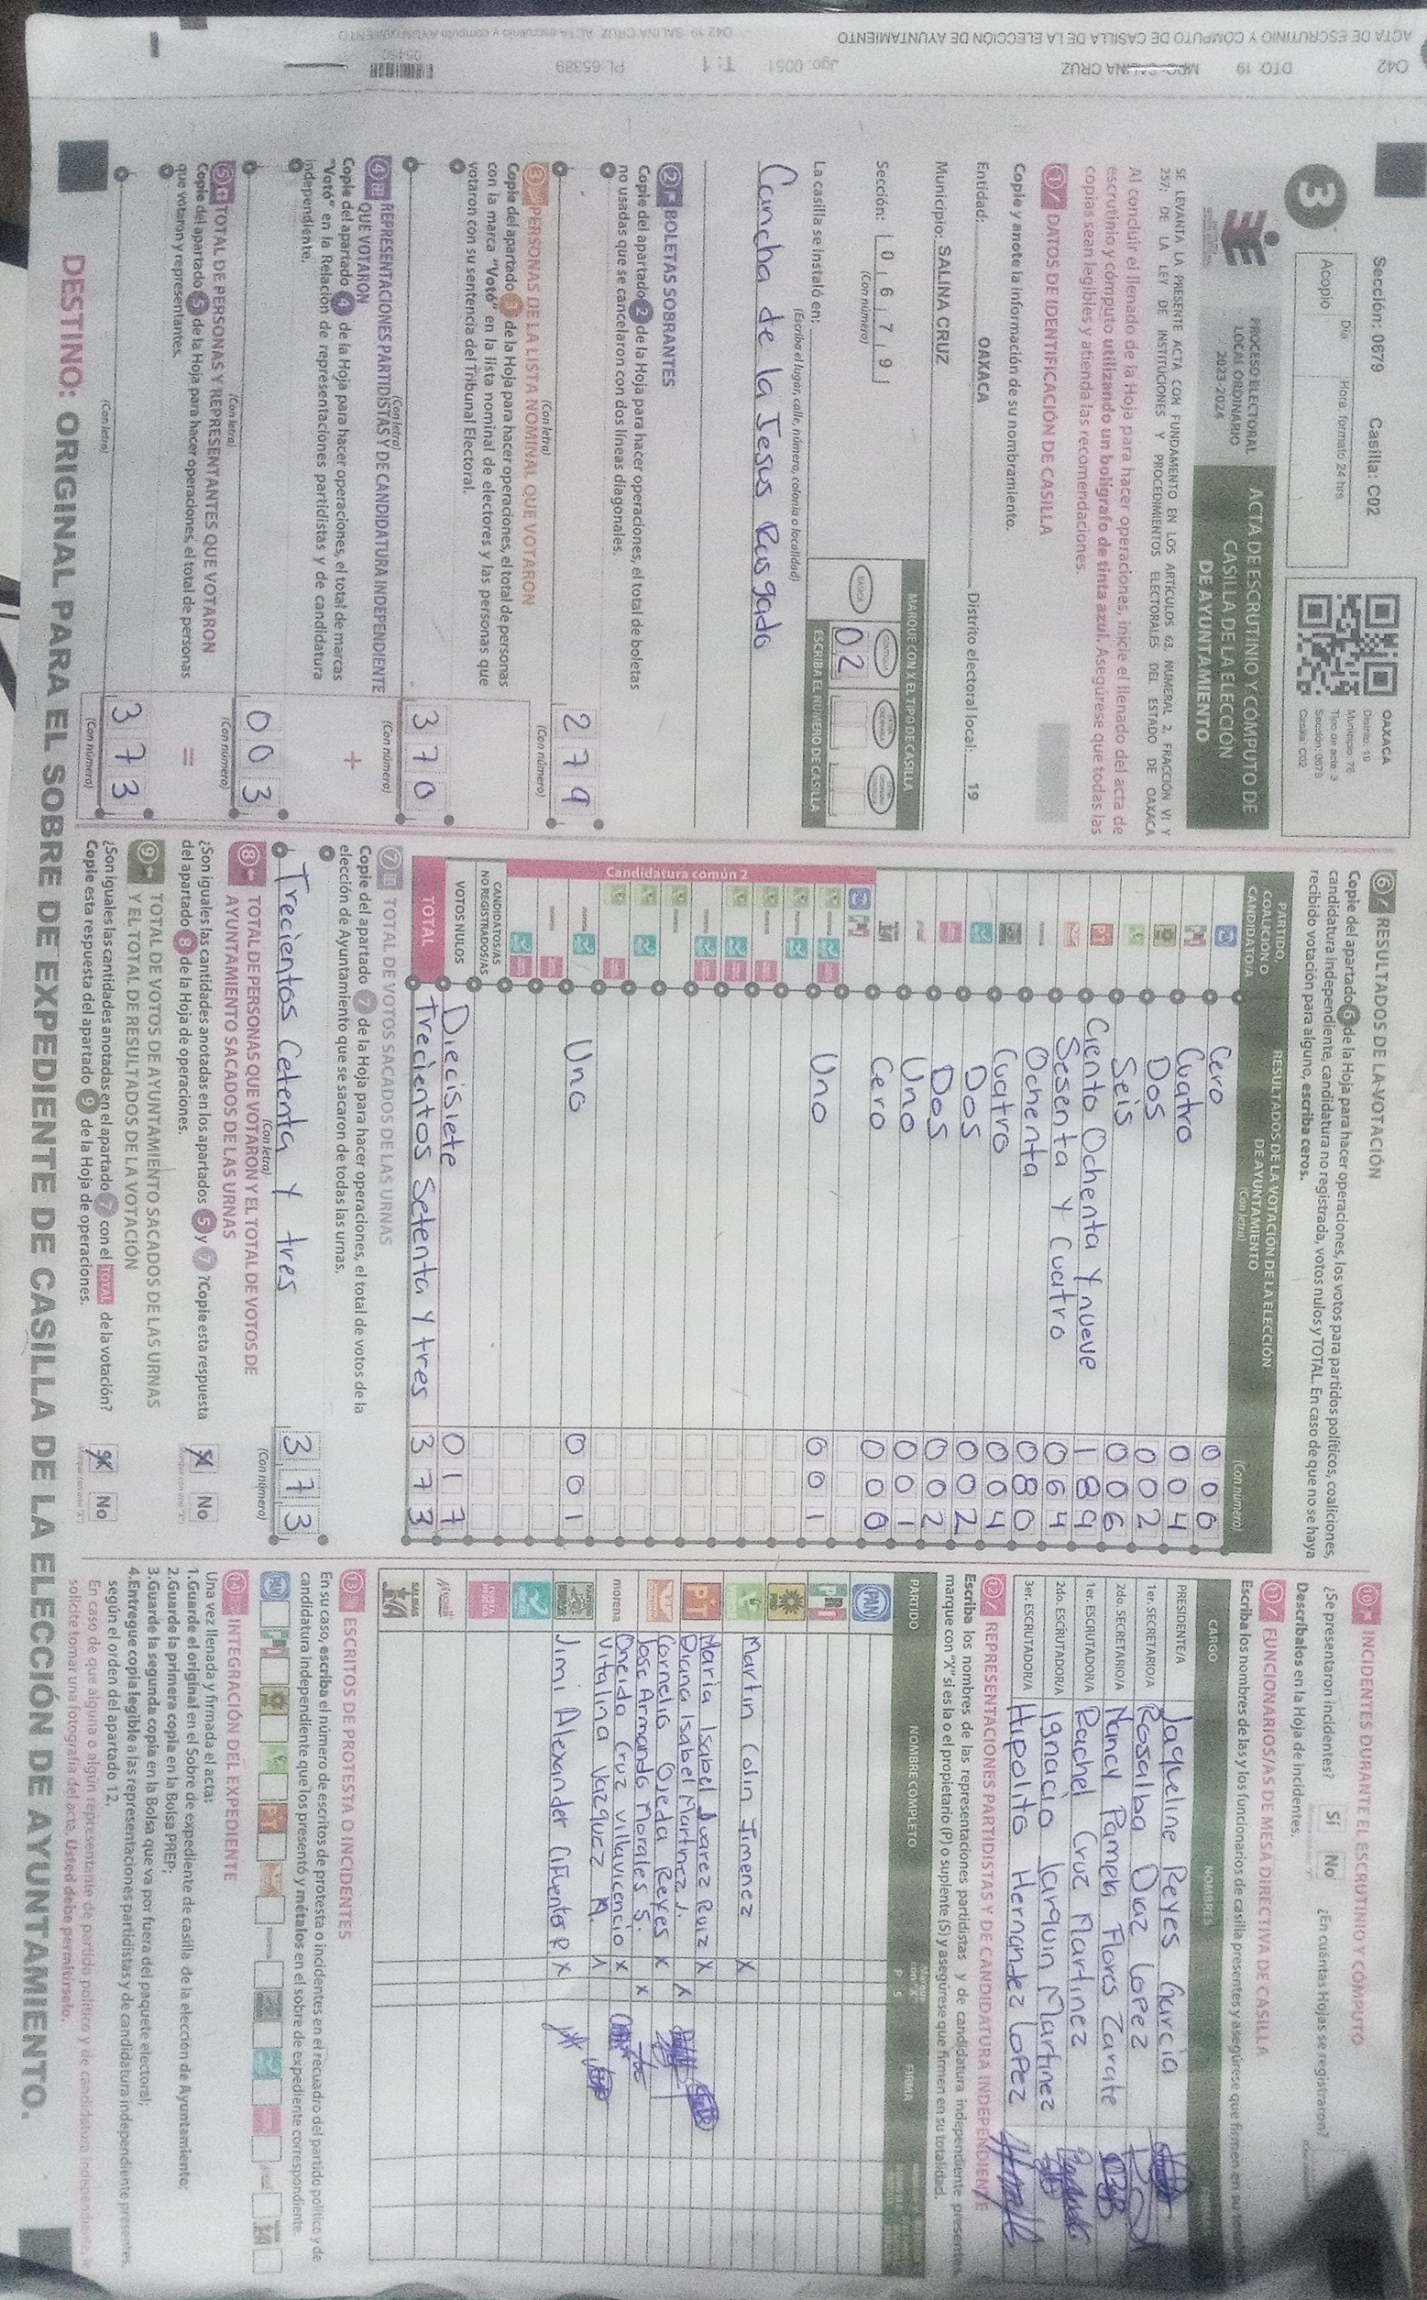 042 DTO 19 MPO SALINA CRUZ Jgo: 0051 T: 1 PL 65389
ACTA DE ESCRUTINIO Y CÓMPUTO DE CASILLA DE LA ELECCIÓN DE AYUNTAMIENTO
Sección: 0679 Casilla: C02
Día Hora: formato 24 hrs
Acopio
3
OAXACA
Distrito: 19
Municipio: 76
Tipo de acta: 3
Sección: 0679
Casilla: C02
PROCESO ELECTORAL
LOCAL ORDINARIO
2023-2024
ACTA DE ESCRUTINIO Y CÓMPUTO DE
CASILLA DE LA ELECCIÓN
DE AYUNTAMIENTO
SE LEVANTA LA PRESENTE ACTA CON FUNDAMENTO EN LOS ARTÍCULOS 63, NUMERAL 2, FRACCIÓN VI Y
257; DE LA LEY DE INSTITUCIONES Y PROCEDIMIENTOS ELECTORALES DEL ESTADO DE OAXACA
Al concluir el llenado de la Hoja para hacer operaciones, inicie el llenado del acta de
escrutinio y cómputo utilizando un bolígrafo de tinta azul. Asegúrese que todas las
copias sean legibles y atienda las recomendaciones.
1 DATOS DE IDENTIFICACIÓN DE CASILLA
Copie y anote la información de su nombramiento.
Entidad: OAXACA Distrito electoral local: 19
Municipio: SALINA CRUZ
Sección: 0 6 7 9
(Con número)
MARQUE CON X EL TIPO DE CASILLA
BÁSICA CONTIGUA
02
ESCRIBA EL NÚMERO DE CASILLA
La casilla se instaló en:
(Escriba el lugar, calle, número, colonia o localidad)
Cancha de la Jesus Rasgado
2 BOLETAS SOBRANTES
Copie del apartado 2 de la Hoja para hacer operaciones, el total de boletas
no usadas que se cancelaron con dos líneas diagonales.
279
(Con letra) (Con número)
3 PERSONAS DE LA LISTA NOMINAL QUE VOTARON
Copie del apartado 3 de la Hoja para hacer operaciones, el total de personas
con la marca "Votó" en la lista nominal de electores y las personas que
votaron con su sentencia del Tribunal Electoral.
370
(Con letra) (Con número)
4 REPRESENTACIONES PARTIDISTAS Y DE CANDIDATURA INDEPENDIENTE
QUE VOTARON
Copie del apartado 4 de la Hoja para hacer operaciones, el total de marcas
"Votó" en la Relación de representaciones partidistas y de candidatura
independiente.
+
003
(Con letra) (Con número)
5 TOTAL DE PERSONAS Y REPRESENTANTES QUE VOTARON
Copie del apartado 5 de la Hoja para hacer operaciones, el total de personas
que votaron y representantes.
=
373
(Con letra) (Con número)
6 RESULTADOS DE LA VOTACIÓN
Copie del apartado 6 de la Hoja para hacer operaciones, los votos para partidos políticos, coaliciones,
candidatura independiente, candidatura no registrada, votos nulos y TOTAL. En caso de que no se haya
recibido votación para alguno, escriba ceros.
PARTIDO, COALICIÓN O CANDIDATO/A
RESULTADOS DE LA VOTACIÓN DE LA ELECCIÓN
DE AYUNTAMIENTO
(Con letra) (Con número)
Cero 000
Cuatro 004
Dos 002
Seis 006
Ciento Ochenta y nueve 189
Sesenta y Cuatro 064
Ochenta 080
Cuatro 004
Dos 002
Dos 002
Uno 001
Cero 000
Uno 001
Candidatura común 2
Uno 001
CANDIDATOS/AS
NO REGISTRADOS/AS
VOTOS NULOS Diecisiete 017
TOTAL Trecientos Setenta y tres 373
7 TOTAL DE VOTOS SACADOS DE LAS URNAS
Copie del apartado 7 de la Hoja para hacer operaciones, el total de votos de la
elección de Ayuntamiento que se sacaron de todas las urnas.
Trecientos Cetenta y tres 373
(Con letra) (Con número)
8 TOTAL DE PERSONAS QUE VOTARON Y EL TOTAL DE VOTOS DE
AYUNTAMIENTO SACADOS DE LAS URNAS
¿Son iguales las cantidades anotadas en los apartados 5 y 7 ? Copie esta respuesta
del apartado 8 de la Hoja de operaciones.
X No
9 TOTAL DE VOTOS DE AYUNTAMIENTO SACADOS DE LAS URNAS
Y EL TOTAL DE RESULTADOS DE LA VOTACIÓN
¿Son iguales las cantidades anotadas en el apartado 7 con el TOTAL de la votación?
Copie esta respuesta del apartado 9 de la Hoja de operaciones.
X No
10 INCIDENTES DURANTE EL ESCRUTINIO Y CÓMPUTO
¿Se presentaron incidentes? Sí No ¿En cuántas Hojas se registraron?
Descríbalos en la Hoja de incidentes.
11 FUNCIONARIOS/AS DE MESA DIRECTIVA DE CASILLA
Escriba los nombres de las y los funcionarios de casilla presentes y asegúrese que firmen en su
CARGO NOMBRES
PRESIDENTE/A Jaqueline Reyes Garcia
1er. SECRETARIO/A Rosalba Diaz Lopez
2do. SECRETARIO/A Nancy Pamela Flores Zarate
1er. ESCRUTADOR/A Rachel Cruz Martinez
2do. ESCRUTADOR/A Ignacio Jarquin Martinez
3er. ESCRUTADOR/A Hipolito Hernandez Lopez
12 REPRESENTACIONES PARTIDISTAS Y DE CANDIDATURA INDEPENDIENTE
Escriba los nombres de las representaciones partidistas y de candidatura independiente presentes,
marque con "X" si es la o el propietario (P) o suplente (S) y asegúrese que firmen en su totalidad.
PARTIDO NOMBRE COMPLETO P S FIRMA
PAN
PRI
PRD
Martin Colin Jimenez X
PT Maria Isabel Juarez Ruiz X
Diana Isabel Martinez J. X
Cornelio Ojeda Reyes X
Jose Armando Morales S. X
morena Oneida Cruz Villavicencio X
Vitalina Vazquez M. X
Jimi Alexander Cifuentes R X
13 ESCRITOS DE PROTESTA O INCIDENTES
En su caso, escriba el número de escritos de protesta o incidentes en el recuadro del partido político y de
candidatura independiente que los presentó y métalos en el sobre de expediente correspondiente.
14 INTEGRACIÓN DEL EXPEDIENTE
Una vez llenada y firmada el acta:
1.Guarde el original en el Sobre de expediente de casilla de la elección de Ayuntamiento;
2.Guarde la primera copia en la Bolsa PREP;
3.Guarde la segunda copia en la Bolsa que va por fuera del paquete electoral;
4.Entregue copia legible a las representaciones partidistas y de candidatura independiente presentes,
según el orden del apartado 12.
En caso de que alguna o algún representante de partido político y de candidatura independiente, le
solicite tomar una fotografía del acta, Usted debe permitírselo.
DESTINO: ORIGINAL PARA EL SOBRE DE EXPEDIENTE DE CASILLA DE LA ELECCIÓN DE AYUNTAMIENTO.